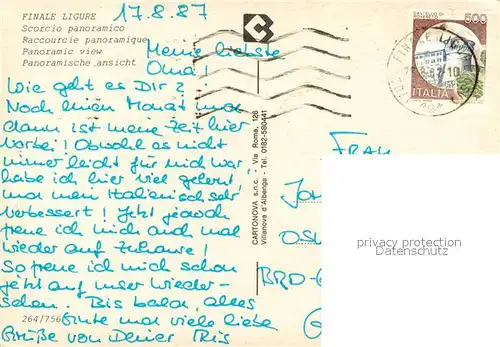 FINALE LIGURE
Scorcio panoramico
Raccourcie panoramique
Panoramic view
Panoramische ansicht
17.8.87
Meine liebste
Oma!
Wie geht es Dir?
Noch einen Monat und
dann ist meine Zeit hier
vorbei! Obwohl es nicht
immer leicht für mich war,
habe ich hier viel gelernt
und mein Italienisch sehr
verbessert! Jetzt jedoch
freue ich mich auch mal
wieder auf Zuhause!
So freue ich mich schon
jetzt auf unser Wieder-
sehen. Bis bald, alles
Gute und viele liebe
Grüße von Deiner Iris
264/756
CARTONOVA s.n.c. - Via Roma, 126
Villanova d'Albenga - Tel. 0182-580441
500
ITALIA
FINALE LIGURE
FRAU
BRD-
privacy protection
Datenschutz